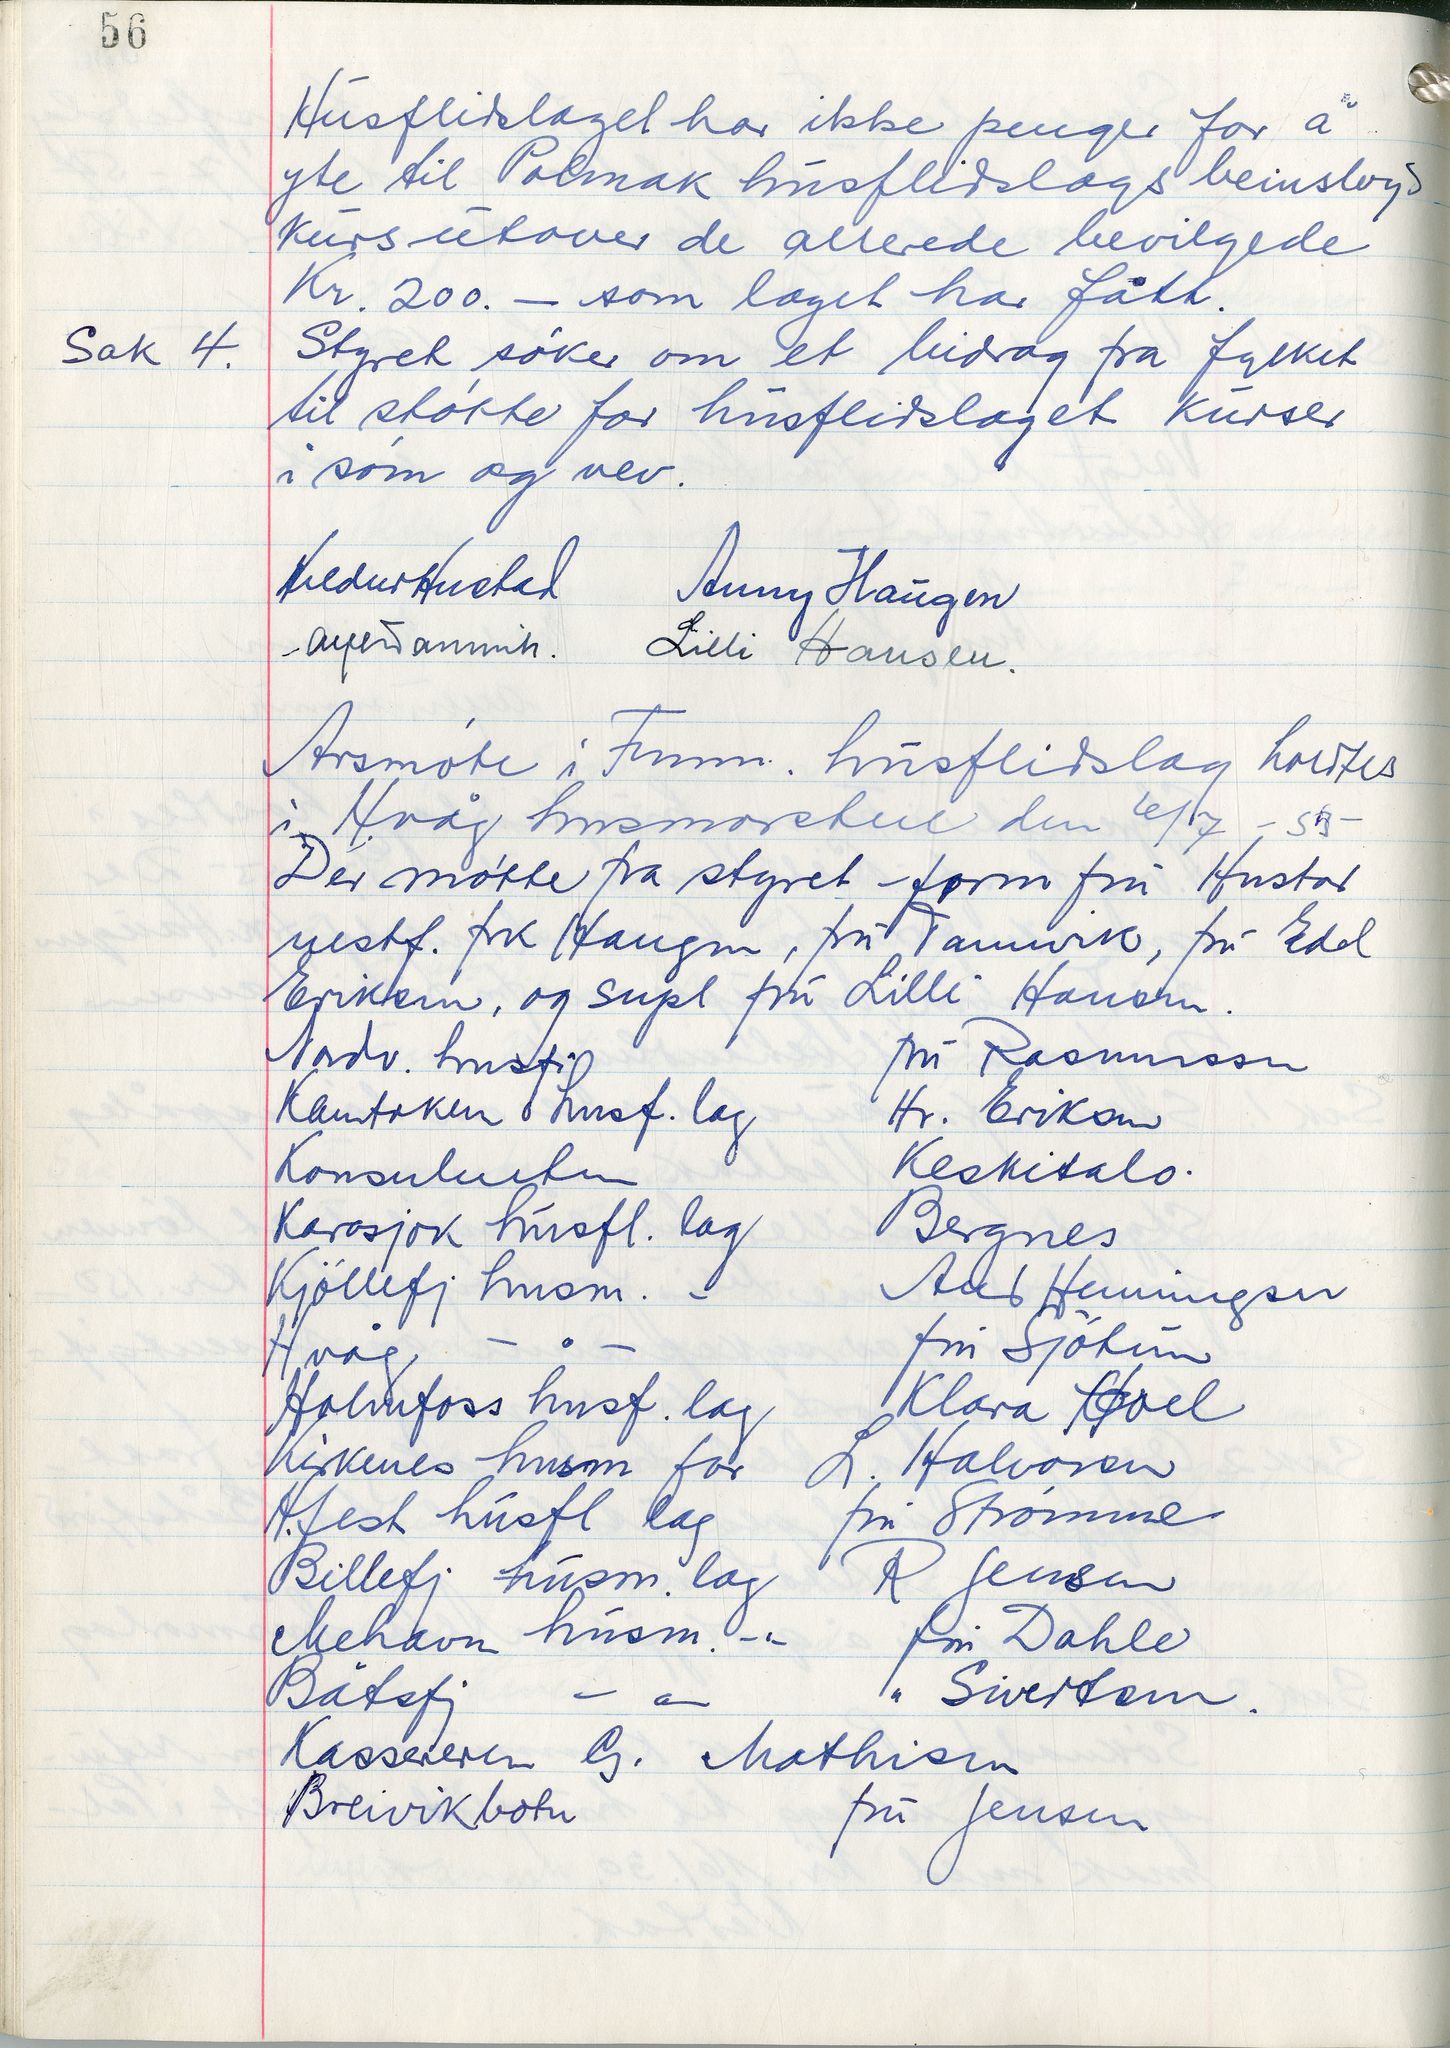 56
Husflidslaget har ikke penger for å
yte til Polmak husflidslags beinsløyd
kurs utover de allerede bevilgede
Kr. 200. — som laget har fått.
Sak 4. Styret søker om et bidrag fra fylket
til støtte for husflidslaget kurser
i søm og vev.
Hustad Anny Haugen
Lilli Hansen.
Årsmøte i Finnm. husflidslag holdtes
i H.våg husmorskule den /7 - 55 -
Der møtte fra styret form fru Hustad
nestf. frk Haugen, fru Tannvik, fru Edel
Eriksen, og supl fru Lilli Hansen.
Nordv. husfl fru Rasmussen
Kautoken husf. lag Hr. Eriksen
Konsulenten Keskitalo.
Karasjok husfl. lag Bergnes
Kjöllefj husm. - Aud Henningsen
H våg - " - fru Sjötun
Holmfoss husf. lag Klara Hoel
Kirkenes husm for L. Halvorsen
H.fest husfl lag fru Strømme
Billefj husm. lag R Jensen
Mehavn husm. -"- fru Dahle
Båtsfj - " - " Sivertsen.
Kassereren G. Mathisen
Breivikbotn fru Jensen